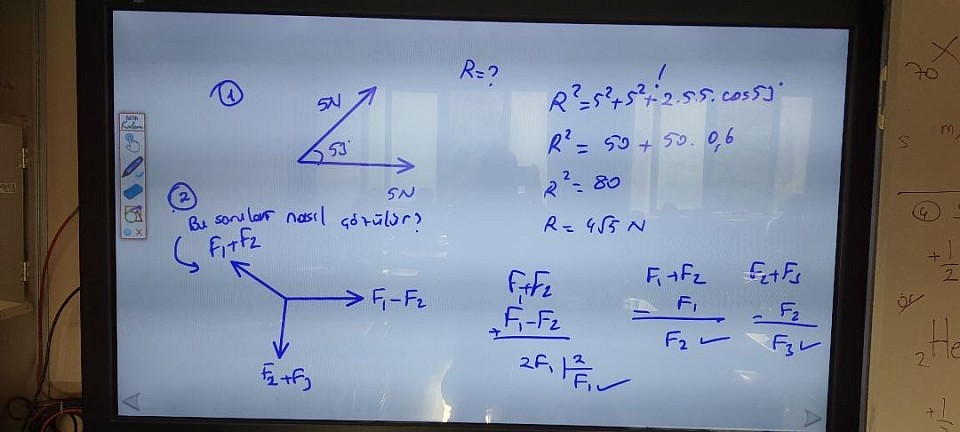 ①
R=?
5N
53°
5N
R²=5²+5²+2.5.5.cos53°
R²= 50 + 50. 0,6
R²= 80
R= 4√5 N
②
Bu sorular nasıl çözülür?
F₁+F₂
F₁-F₂
F₂+F₃
F₁+F₂
+ F₁-F₂
2F₁ | 2
F₁ ✓
F₁+F₂
- F₁
F₂ ✓
F₂+F₃
- F₂
F₃ ✓
70 X
5 m
④
+1/2
₂He
+1/2